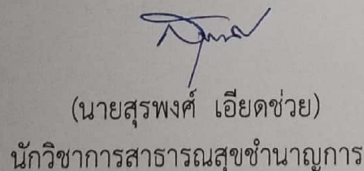 (นายสุรพงศ์ เอียดช่วย)
นักวิชาการสาธารณสุขชำนาญการ